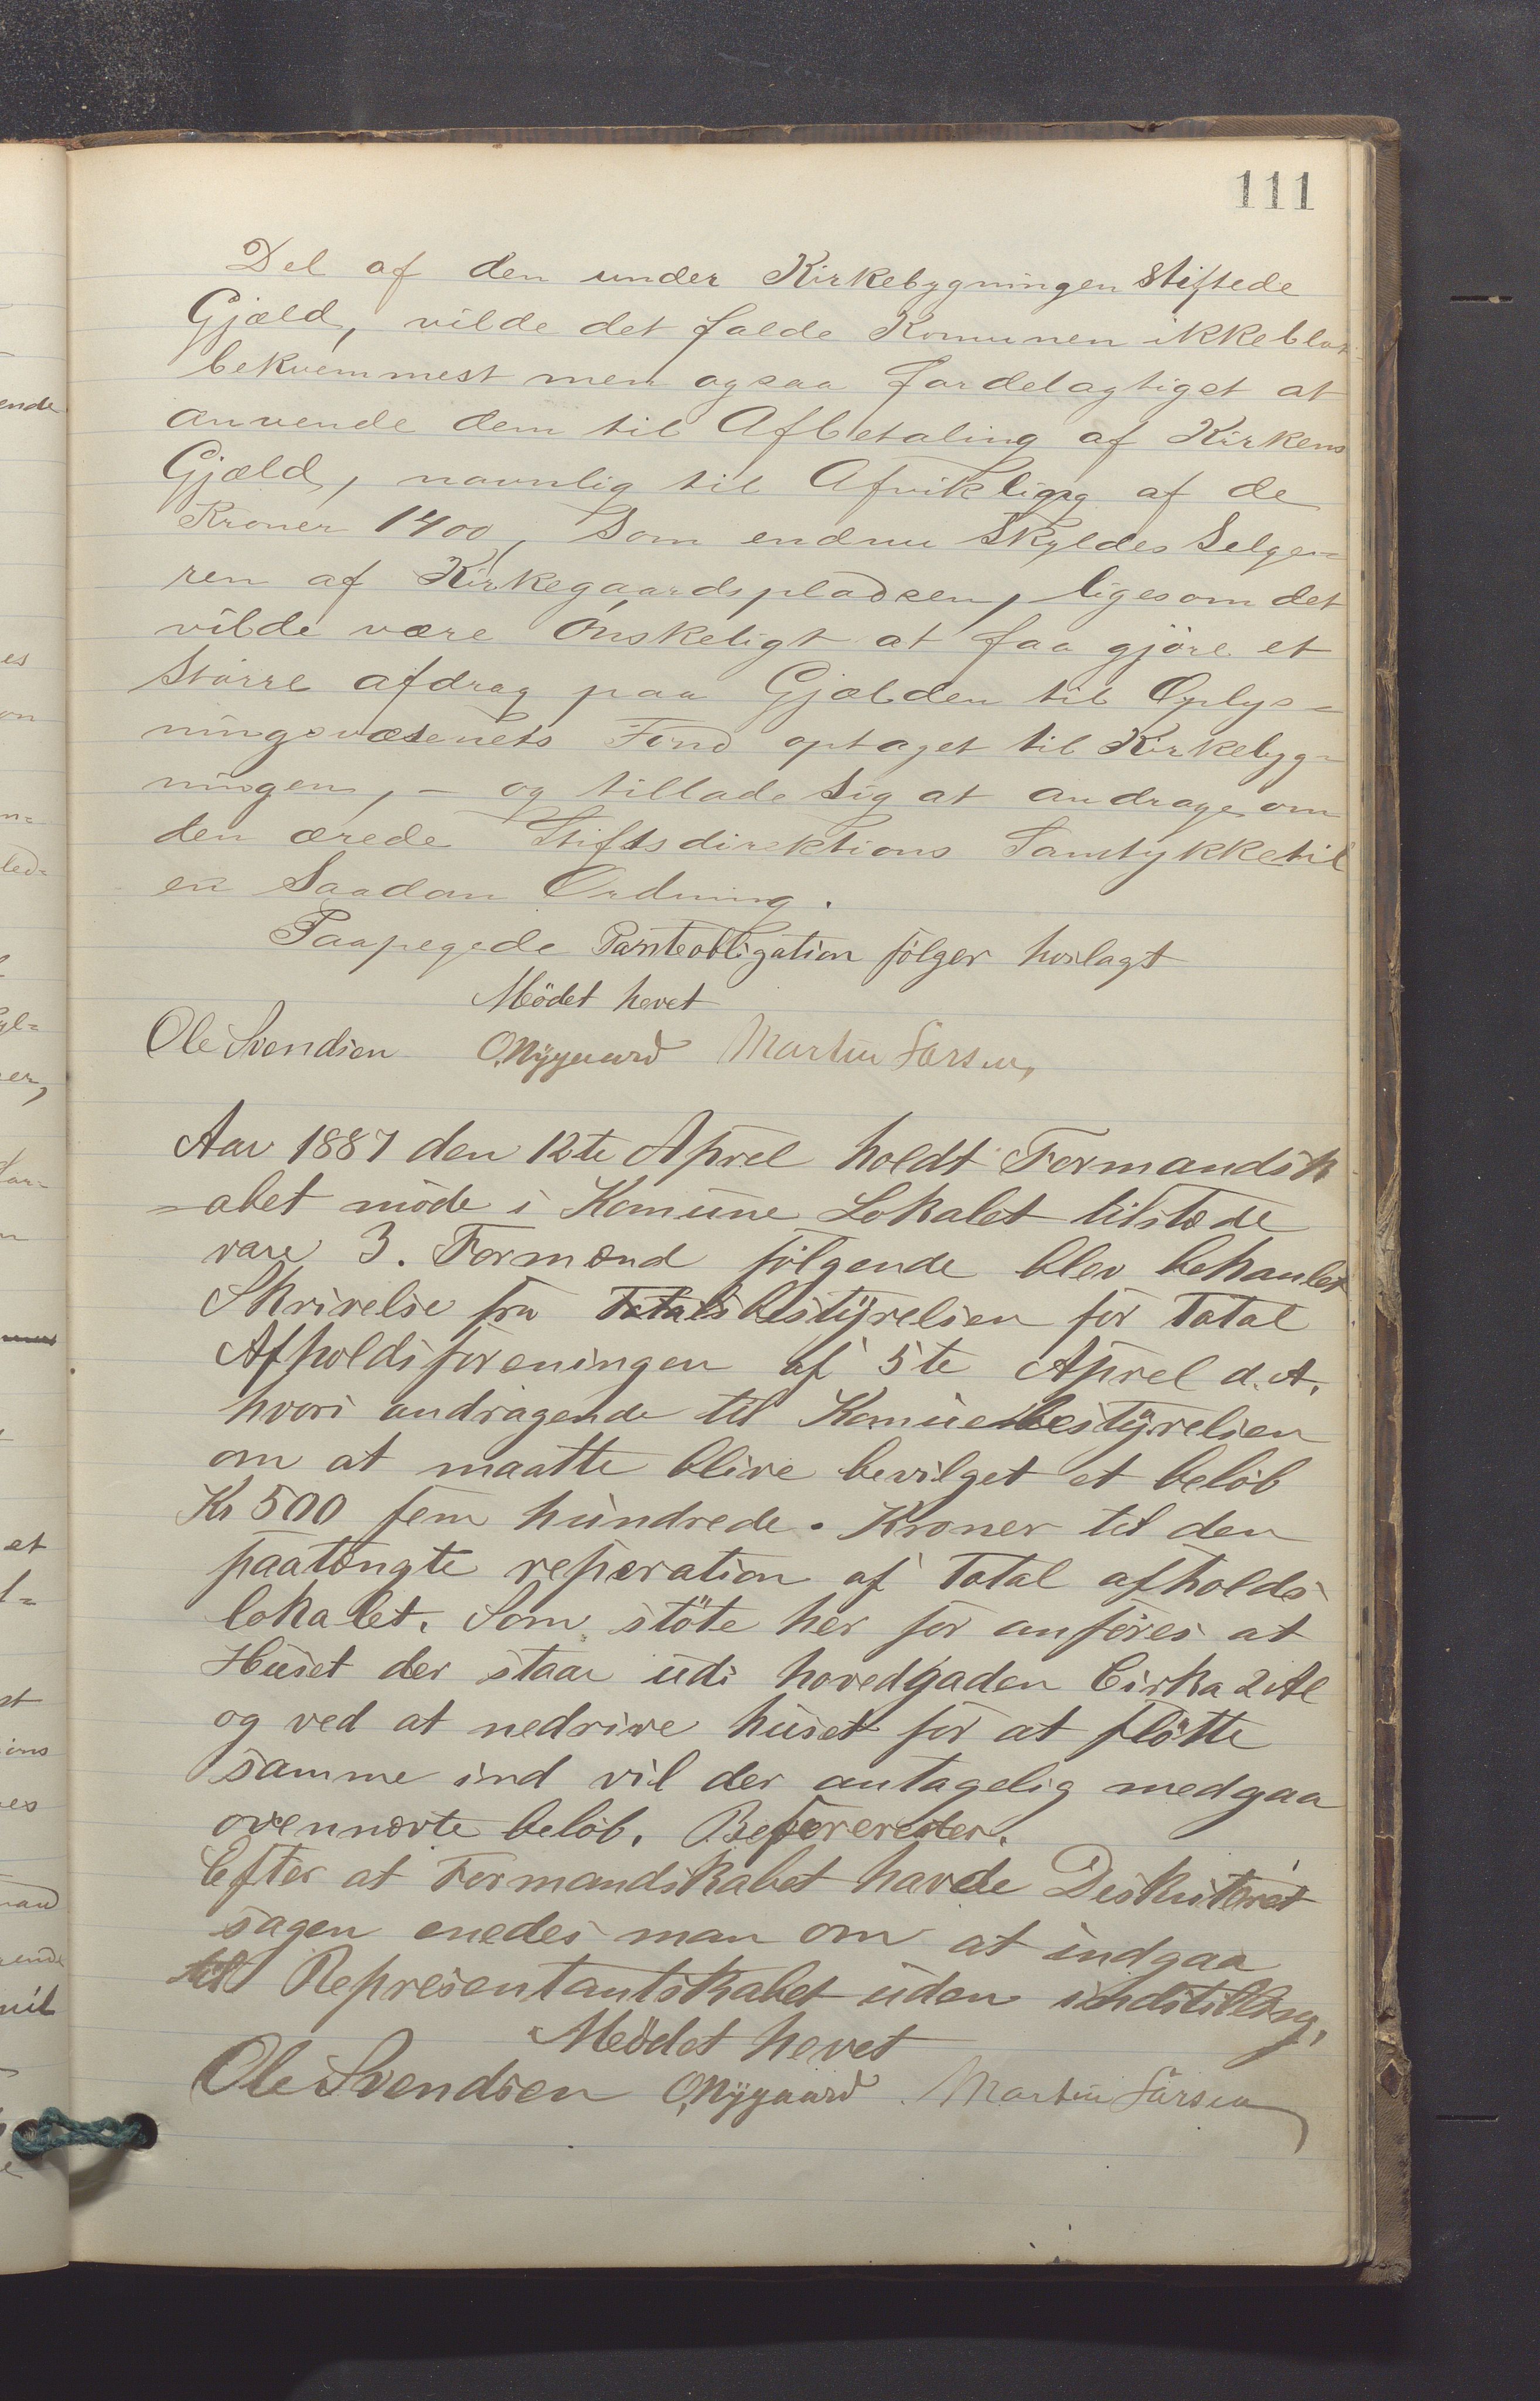 111
Del af den under Kirkebygningen stiftede
Gjæld, vilde det falde Komunen ikke blot
bekvemmest men ogsaa fordelagtigst at
anvende dem til Afbetaling af Kirkens
Gjæld, navnlig til Afvikling af de
Kroner 1400, Som endnu Skyldes Selge=
ren af Kirkegaardspladsen, ligesom det
vilde være Ønskeligt at faa gjøre et
Større afdrag paa Gjælden til Oplys=
ningsvæsenets Fond optaget til Kirkebyg=
ningen, – og tillade Sig at andrage om
den ærede Stiftsdirektions Samtykke til
en Saadan Ordning.
Paapegede Panteobligation følger hoslagt
Mödet hevet
Ole Svendsen O. Nÿgaard Martin Larsen
Aar 1887 den 12te Aprel holdt Formandsk
=abet möde i Komune Lokalet tilstæde
vare 3. Formænd fölgende blev behanlet
Skrivelse fra bestÿrelsen for Total
Afholdsforeningen af 5te Aprel d. A.
hvori andragende til Komunebestÿrelsen
om at maatte blive bevilget et belöb
Kr 500 fem hundrede. Kroner til den
paatængte reperation af Total afholds
lokalet. Som stöte her for anföres at
Huset der staar udi hovedgaden Cirka 2 Al
og ved at nedrive huset for at flötte
samme ind vil der antagelig medgaa
ovennævte belöb. Referereder.
Efter at Formandskabet havde Diskuteret
sagen enedes man om at indgaa
til Representantskabet uden indstilling,
Mödet hevet
Ole Svendsen O. Nÿgaard Martin Larsen